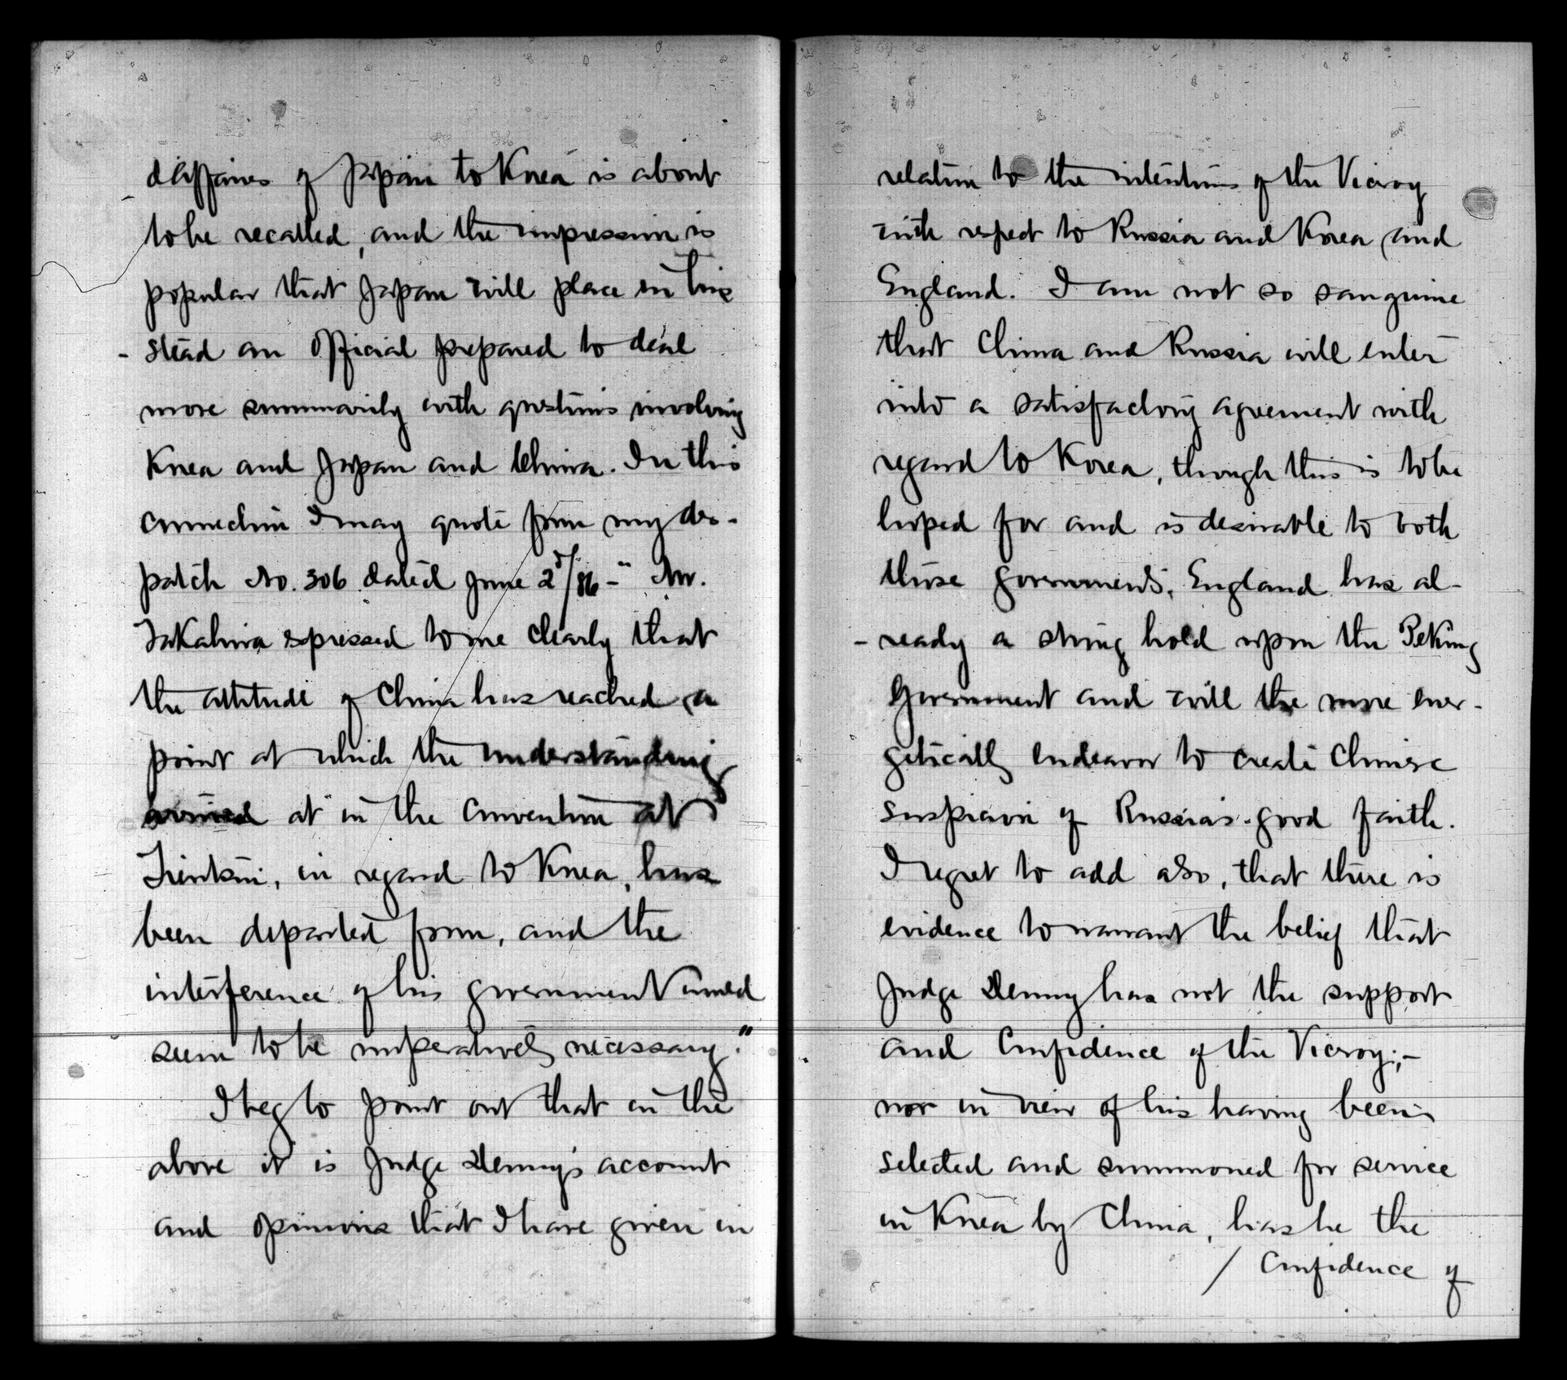 d'affaires of Japan to Korea is about
to be recalled, and the impression is
popular that Japan will place in his
stead an official prepared to deal
more summarily with questions involving
Korea and Japan and China. In this
connection I may quote from my des-
patch No. 306 dated June 2d/86 – " Mr.
Takahira expressed to me clearly that
the attitude of China has reached a
point at which the understanding
arrived at in the Convention at
Tientsin, in regard to Korea, has
been departed from, and the
interference of his government would
seem to be imperatively necessary."
I beg to point out that in the
above it is Judge Denny's account
and opinions that I have given in
relation to the intentions of the Viceroy
with respect to Russia and Korea and
England. I am not so sanguine
that China and Russia will enter
into a satisfactory agreement with
regard to Korea, though this is to be
hoped for and is desirable to both
those governments. England has al-
ready a strong hold upon the Peking
Government and will the more ener-
getically endeavor to create Chinese
suspicion of Russia's good faith.
I regret to add also, that there is
evidence to warrant the belief that
Judge Denny has not the support
and Confidence of the Viceroy; –
nor in view of his having been
selected and summoned for service
in Korea by China, has he the
/ Confidence of